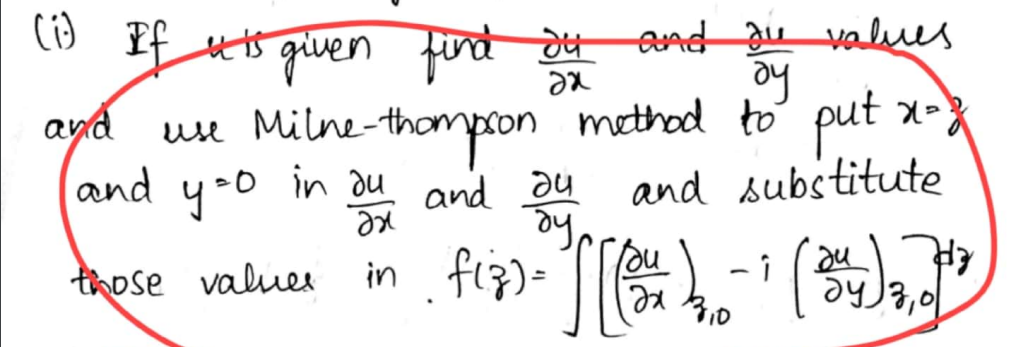 (i) If u is given find ∂u/∂x and ∂u/∂y values
and use Milne-thompson method to put x=z
and y=0 in ∂u/∂x and ∂u/∂y and substitute
those values in f(z)=∫[(∂u/∂x)z,0 -i (∂u/∂y)z,0]dz